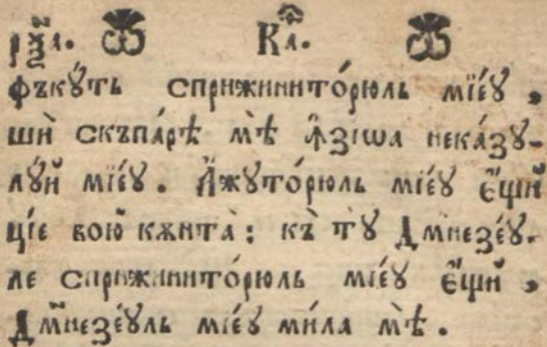 рѯ҃а. Ка҃.
фъкꙋ́ть сприжинито́рюль мїе́ꙋ ,
шѝ скъпа́рѣ мѣ̀ ꙟ҆зїѡа нека́зꙋ-
лꙋ́й мїе́ꙋ . А҆жꙋто́рюль мїе́ꙋ є҆́щй
цїе вою̆ кѫнта̀ : къ̀ тꙋ̀ Дм҃незе́ꙋ-
ле сприжинито́рюль мїе́ꙋ є҆́щй ,
Дм҃незе́ꙋль мїе́ꙋ ми́ла мѣ̀ .